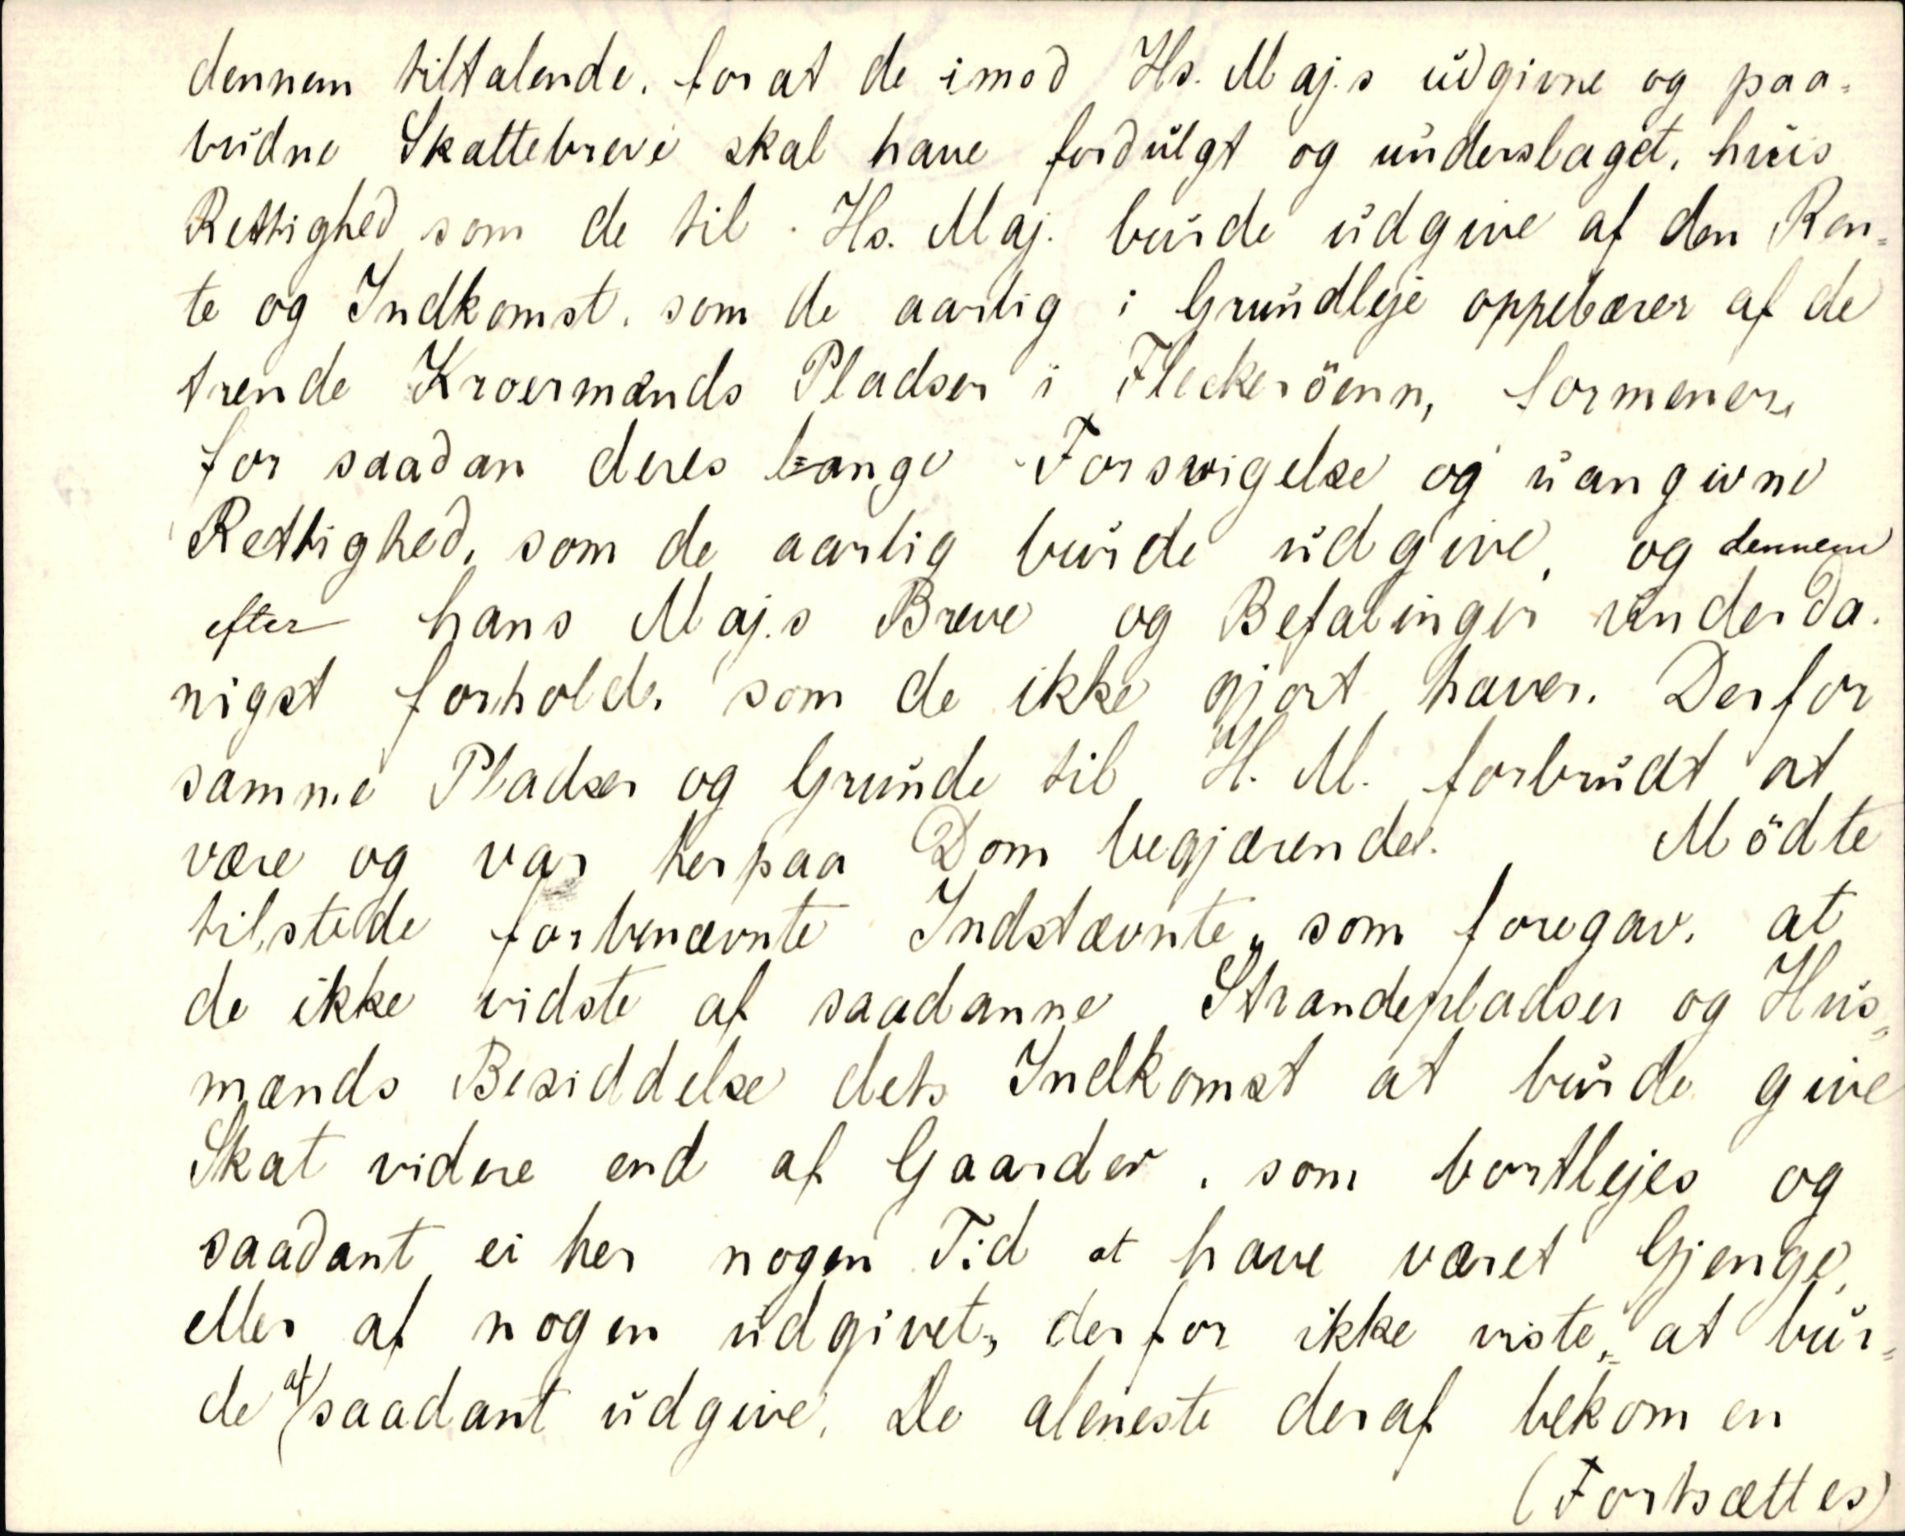 dennem tiltalende, for at de imod Hs. Maj.s udgivne og paa-
budne Skattebreve skal have fordulgt og underslaget, huis
Rettighed som de til Hs. Maj. burde udgive af den Ren-
te og Indkomst, som de aarlig i Grundleje oppebærer af de
trende Kroermænds Pladser i Fleckeröenn, formener,
for saadan deres lange Forswigelse og uangivne
Rettighed, som de aarlig burde udgive, og dennem
efter hans Maj.s Breve og Befalinger underda-
nigst forholde, som de ikke gjort haver. Derfor
samme Pladser og Grunde til H. M. forbrudt at
være og var herpaa Dom begjærende. Mödte
tilstede forbenævnte Indstævnte, som foregav, at
de ikke vidste af saadanne Strandepladser og Hus-
mænds Besiddelse dets Indkomst at burde give
Skat videre end af Gaarder, som bortlejes og
saadant ei her nogen Tid at have været Gjenge,
eller af nogen udgivet, derfor ikke viste, at bur-
de af saadant udgive. De aleneste deraf bekom en
(Fortsættes)